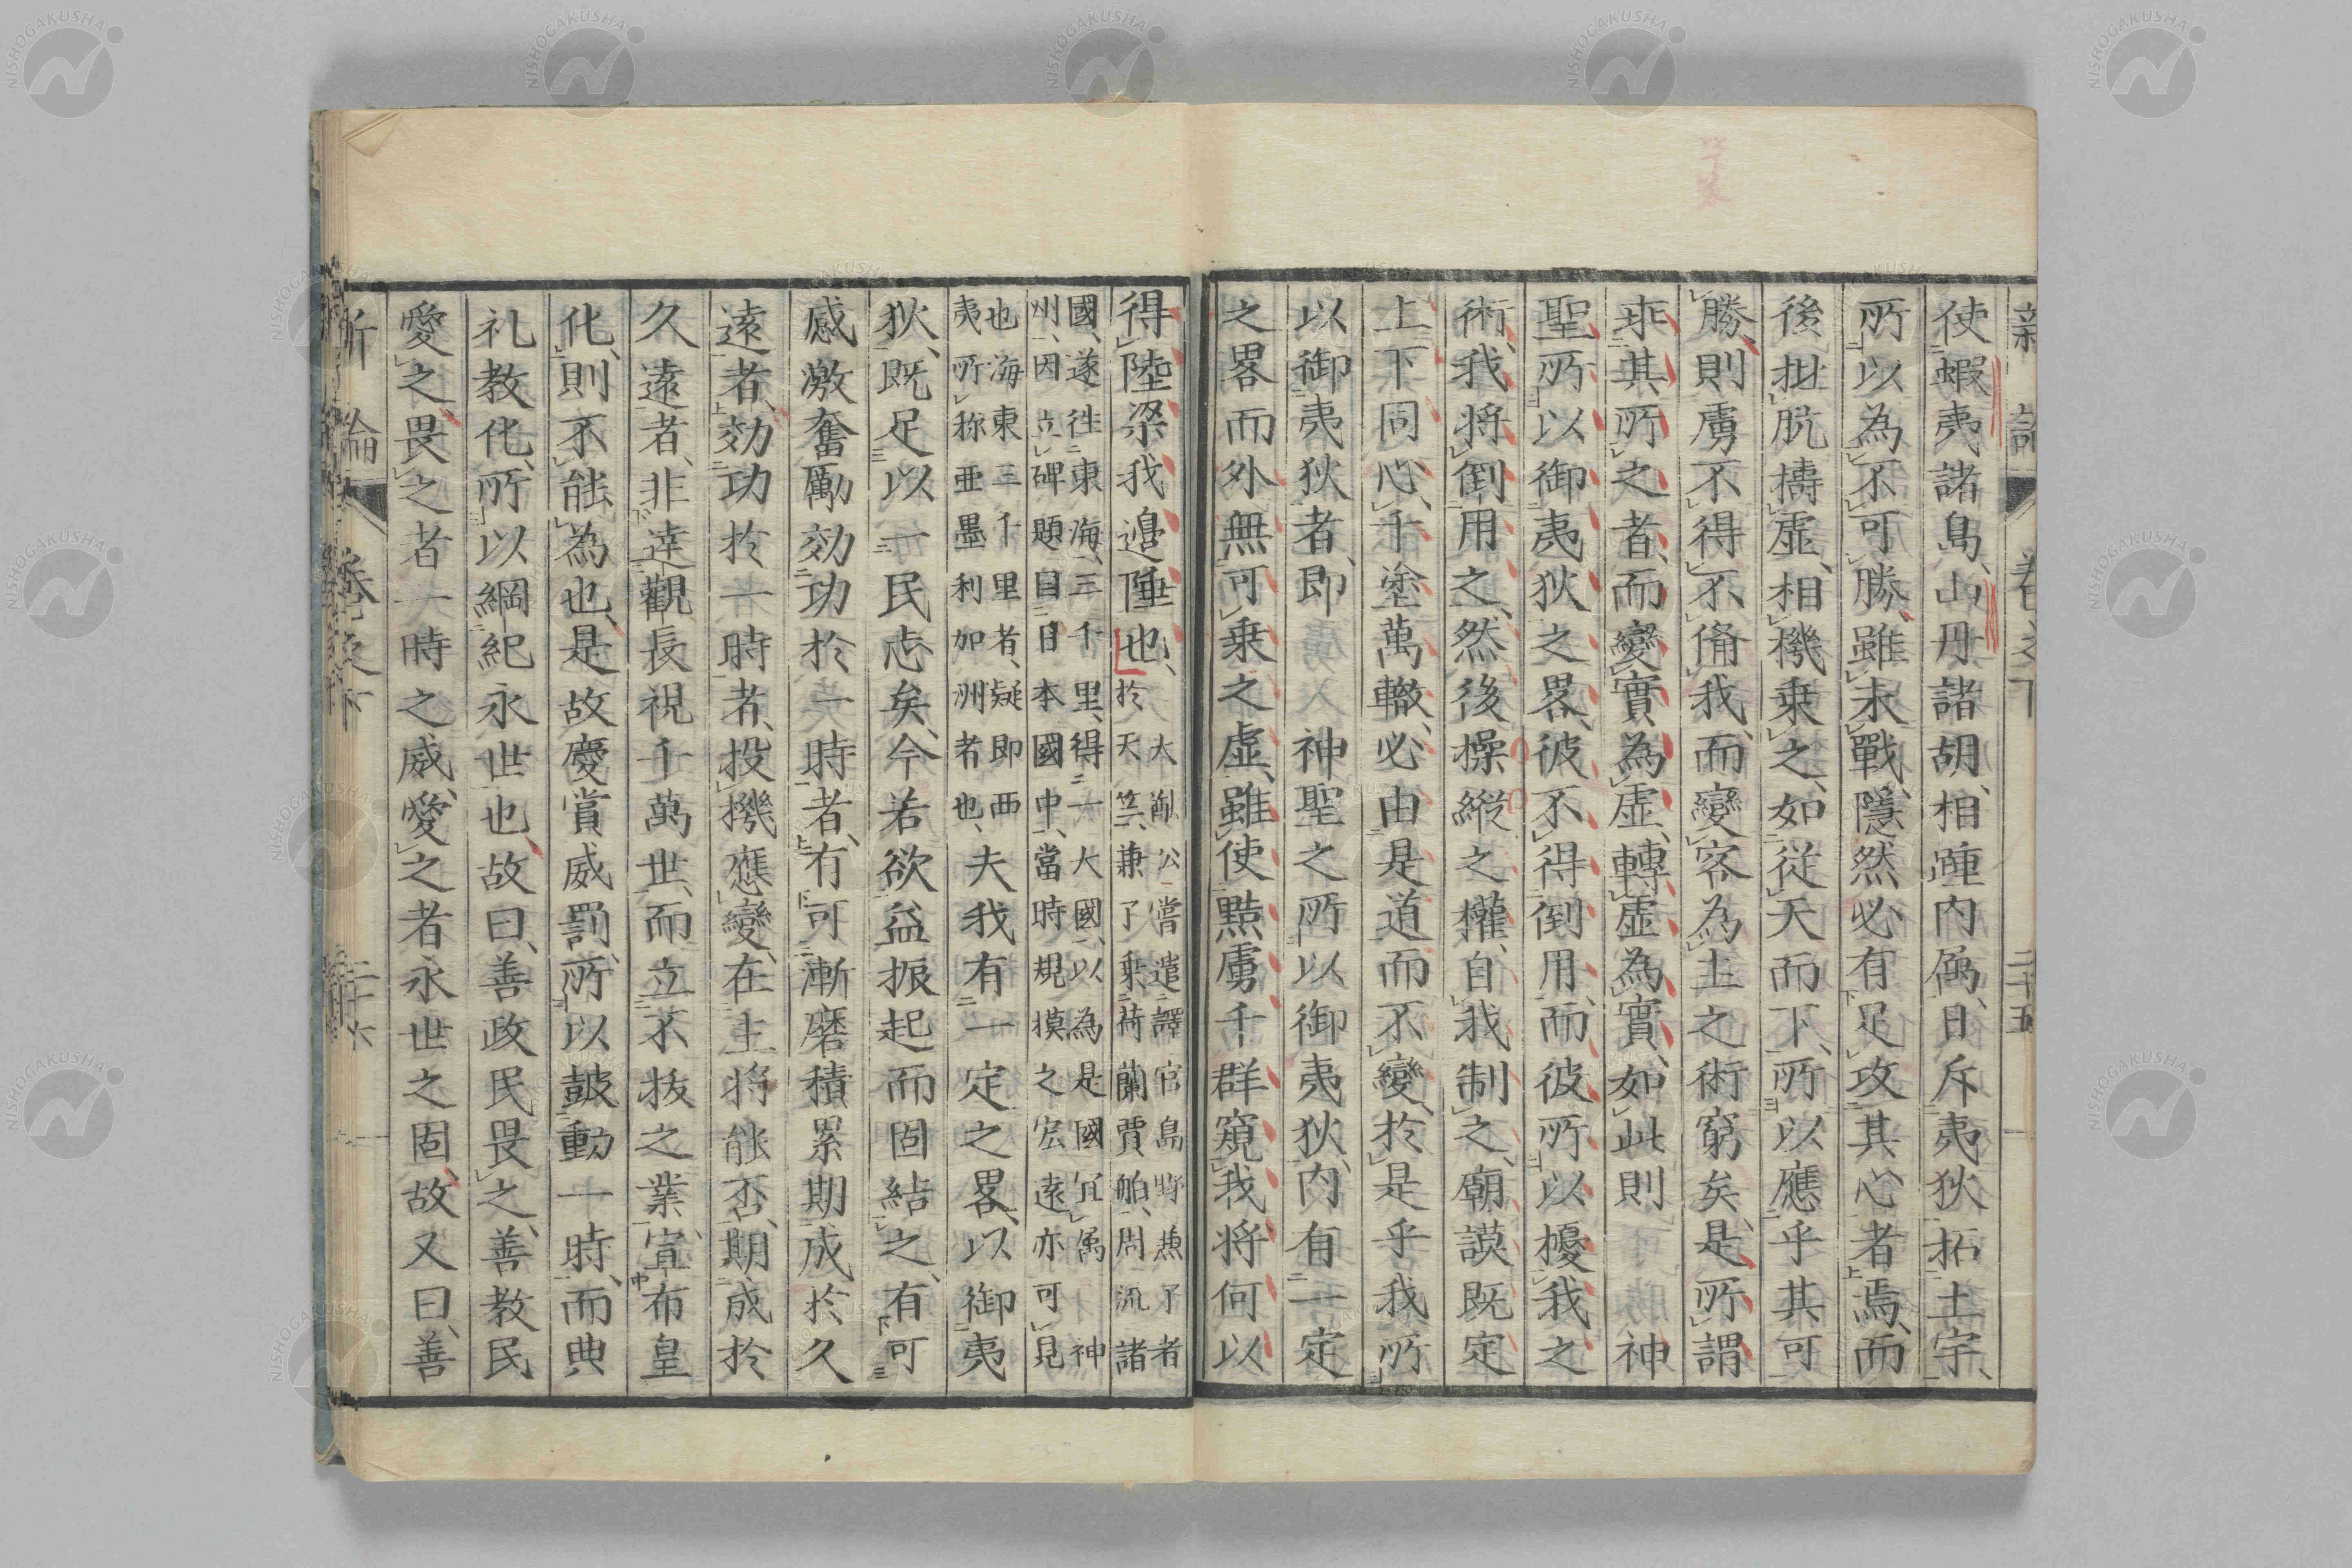 新論 卷之下 二十五
使蝦夷諸島、山丹諸胡、相踵内属、日斥夷狄、拓土宇、
所以為不可勝、雖未戰、隱然必有足攻其心者焉、而
後批肮擣虛、相機乗之、如従天而下、所以應乎其可
勝、則虜不得不俻我、而變客為主之術窮矣、是所謂
乖其所之者、而變實為虛、轉虛為實、如此則 神
聖所以御夷狄之畧、彼不得倒用、而彼所以擾我之
術、我將倒用之、然後操縱之權、自我制之、廟謨既定
上下同心、千塗萬轍、必由是道而不變、於是乎我所
以御夷狄者、即 神聖之所以御夷狄、内有一定
之畧而外無可乗之虛、雖使黠虜千群窺我將何以
得陸梁我邉陲也、大 公嘗遣譯官島野兼了者
於天竺、兼了乗荷蘭賈舶、周流諸
國、遂徃東海三千里、得一大國、以為是國冝属 神
州、因立碑題曰日本國中、當時規摸之宏遠亦可見
也、海東三千里者、疑即西
夷所称亜墨利加洲者也、夫我有一定之畧、以御夷
狄、既足以一民志矣、今若欲益振起而固結之、有可
感激奮勵効功於一時者、有可漸磨積累期成於久
遠者、効功於一時者、投機應變、在主將能否、期成於
久遠者、非達觀長視千萬世、而立不抜之業、宣布皇
化、則不能為也、是故慶賞威罰、所以鼓動一時、而典
礼教化、所以綱紀永世也、故曰、善政民畏之、善教民
愛之、畏之者一時之威、愛之者永世之固、故又曰、善
新論 卷之下 二十六
NISHOGAKUSHA